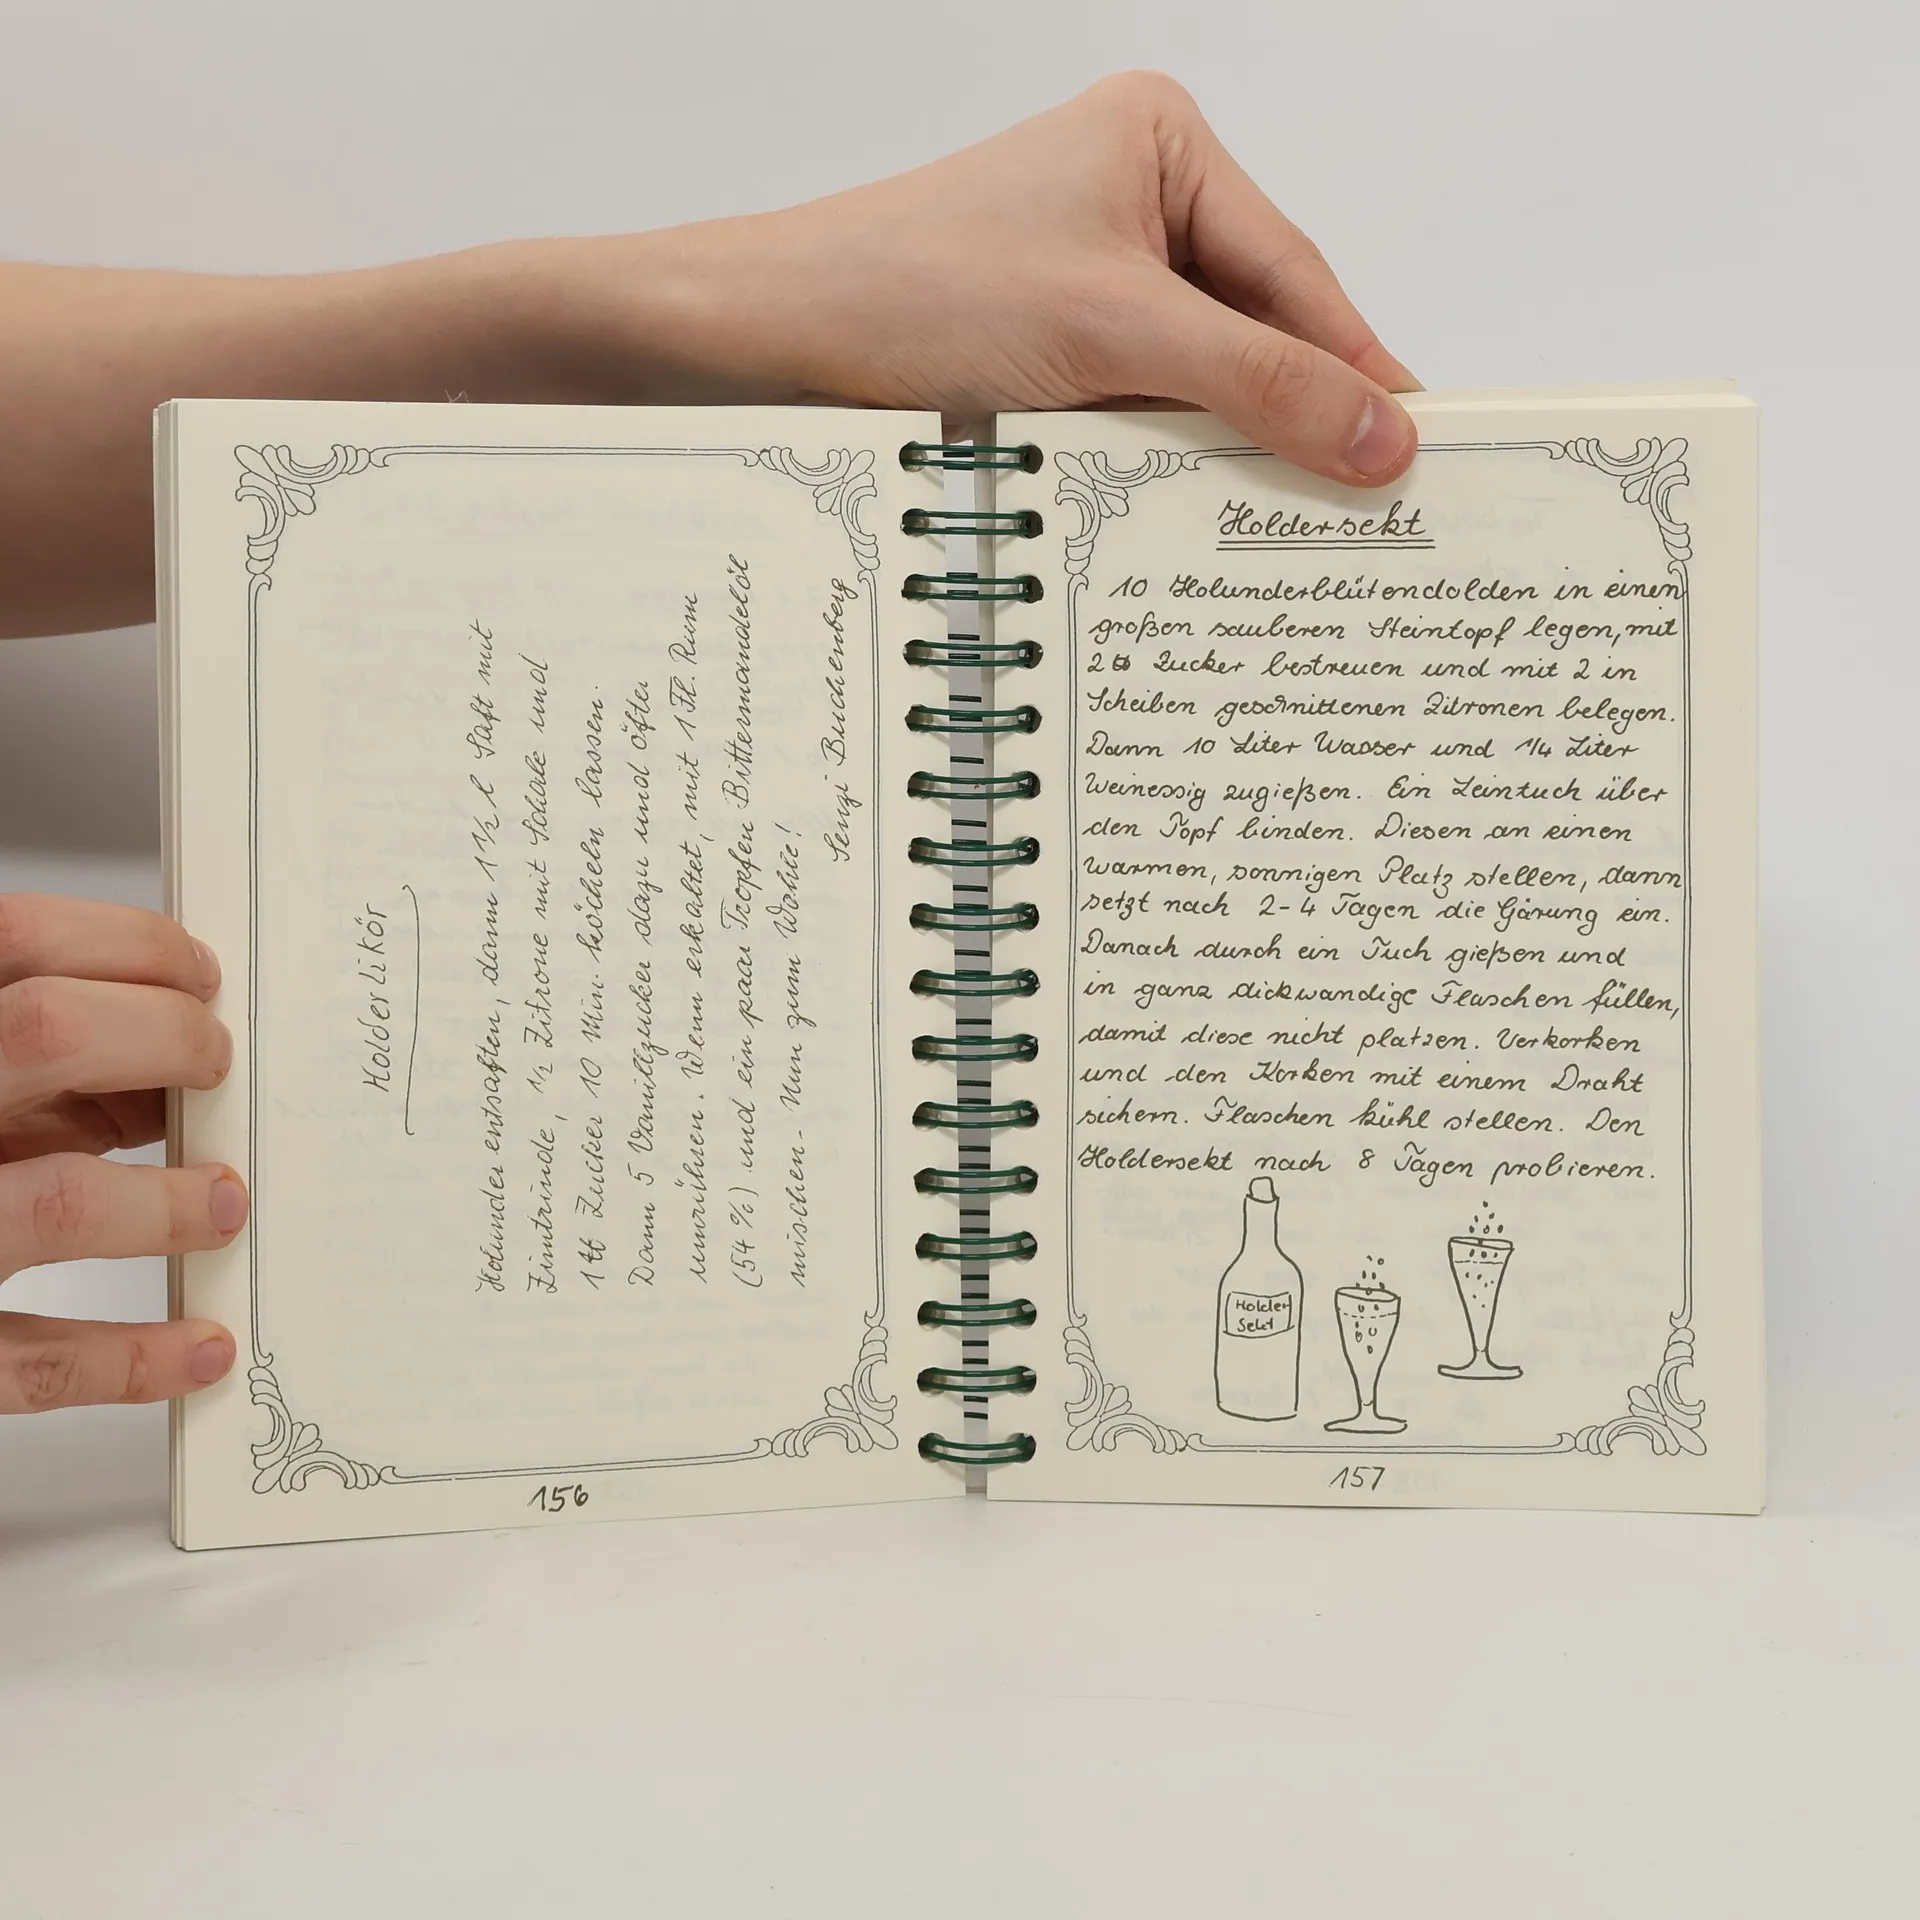 Holderlikör
Holunder entsaften, dann 1 1/2 l Saft mit
Zimtrinde, 1/2 Zitrone mit Schale und
1 ℔ Zucker 10 Min. köcheln lassen.
Dann 5 Vanillzucker dazu und öfter
umrühren. Wenn erkaltet, mit 1 Fl. Rum
(54 %) und ein paar Tropfen Bittermandelöl
mischen - Nun zum Wohle!
Senzi Buchenberg
156
Holdersekt
10 Holunderblütendolden in einen
großen sauberen Steintopf legen, mit
2 ℔ Zucker bestreuen und mit 2 in
Scheiben geschnittenen Zitronen belegen.
Dann 10 Liter Wasser und 1/4 Liter
Weinessig zugießen. Ein Leintuch über
den Topf binden. Diesen an einen
warmen, sonnigen Platz stellen, dann
setzt nach 2-4 Tagen die Gärung ein.
Danach durch ein Tuch gießen und
in ganz dickwandige Flaschen füllen,
damit diese nicht platzen. Verkorken
und den Korken mit einem Draht
sichern. Flaschen kühl stellen. Den
Holdersekt nach 8 Tagen probieren.
Holder
Sekt
157